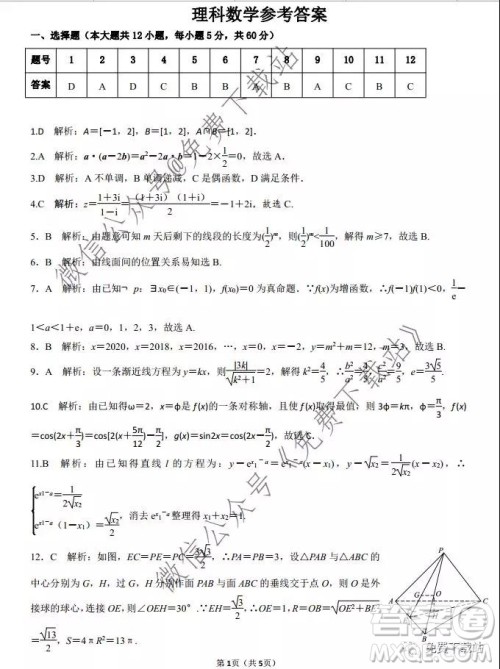 理科数学参考答案
一、选择题（本大题共12小题，每小题5分，共60分）
题号 1 2 3 4 5 6 7 8 9 10 11 12
答案 D A D C B B A B A C B C
1.D 解析：A=[-1，2]，B=[1，2]，A∩B=[1，2]．
2.A 解析：a·(a-2b)=a²-2a·b=1-2×1/2=0，故选 A.
3.D 解析：A 不单调，B 单调递减，C 是偶函数，D 满足条件．
4.C 解析：z=(1+3i)/(1-i)=(1+3i)(1+i)/2=-1+2i．故选 C.
5．B 解析：由题意可知 m 天后剩下的线段的长度为(1/2)ᵐ，则(1/2)ᵐ<1/100，解得 m≥7，故选 B.
6．B 解析：由线面间的位置关系易知选 B.
7．A 解析：由已知¬p：∃x₀∈(-1，1)，f(x₀)=0 为真命题．∵f(x)为增函数，∴f(-1)f(1)<0，1/e
-1<a<1+e，a=0，1，2，3，故选 A.
8．B 解析：x=2020，x=2018，x=2016，…，x=0，x=-2，y=m²+m=12，m=3，故选 B.
9．A 解析：设一条渐近线方程为 y=kx，则|3k|/√(k²+1)=2，解得 k²=4/5，∴b²/a²=4/5，c²/a²=9/5，e=3√5/5.
10.C 解析：由已知得ω=2，x=φ是 f(x)的一条对称轴，且使 f(x)取得最值，则 3φ=kπ，φ=π/3，f(x)
=cos(2x+π/3)=cos[2(x+5π/12)-π/2]，g(x)=sin2x=cos(2x-π/2)，故选 C.
11.B 解析：由已知得直线 l 的方程为：y-eˣ¹⁻ᵃ=eˣ¹⁻ᵃ(x-x₁)，y-√x₂=1/(2√x₂)(x-x₂)，∴
{eˣ¹⁻ᵃ=1/(2√x₂)
eˣ¹⁻ᵃ(1-x₁)=√x₂/2，消去 eˣ¹⁻ᵃ整理得 x₁+x₂=1.
12．C 解析：如图，EC=PE=PC=3√3/2，∴PA=PB=3，设△PAB 与△ABC 的
中心分别为 G，H，过 G，H 分别作面 PAB 与面 ABC 的垂线交于点 O，则 O 是外
接球的球心，连接 OE，则∠OEH=30°.∵EH=√3/2，∴OH=1/2，R=OB=√(OE²+BE²)
=√13/2，S=4πR²=13π.
P
A
B
C
E
G
H
O
第 1页（共 5页）
微信公众号@免费下载站
微信公众号《免费下载站》
免费下载站